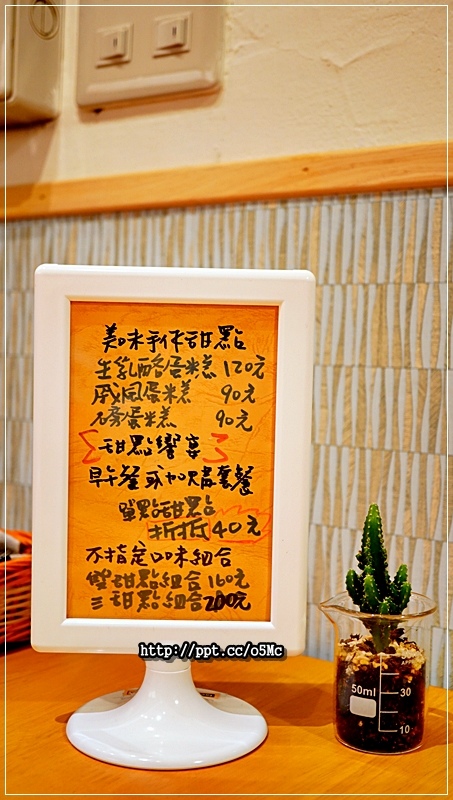 美味手作甜點
生乳酪蛋糕 120元
戚風蛋糕 90元
磅蛋糕 90元
甜點饗宴
早午餐或加購套餐
單點甜點
折抵40元
不指定口味組合
雙甜點組合160元
三甜點組合200元
http://ppt.cc/o5Mc
50ml
30
10